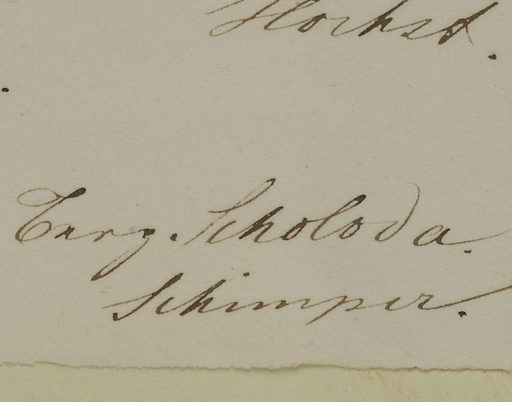 Hochst.
Berg. Scholoda.
Schimper.